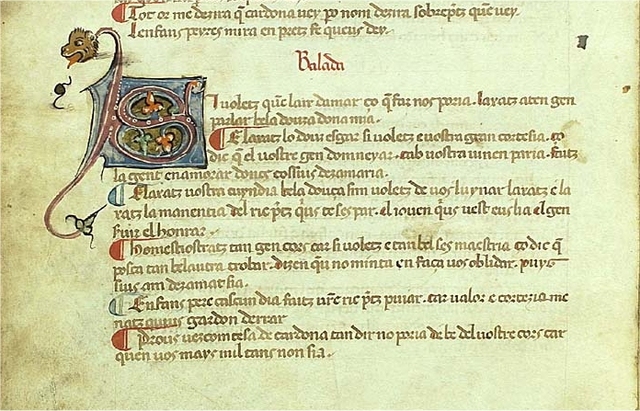 Tot or me dezira q̄ cardona vey po nom dezira sobreptz que vey.
lenfans peyres mira en pretz se queus dey.
Balada
Si voletz que laix damar ço q̄ far nos poria. laxatz aten gen
parlar bela douza dona mia.
E laxatz lo douz esgar si voletz e vostra gran cortesia. co
dic q̄ el vostre gen domneyar. cab vostra unen paria. faitz
la gent enamorar donçs cossius dezamaria.
E laxatz vostra cuyndia bela douça sim voletz de vos luynar laxatz e la
xatz la manentia del ric p̄tz q̄us te ses par. el ioven q̄us vest eus lia el gen
fuir el honrar.
Nom mostratz tan gen cors car si voletz e tan bel ses maestria co dic q̄
posca tan bela utra trobar. dizen q̄u no minta en faça vos oblidar. puys
sius am dezamatsia.
Enfans pere cascun dia faitz vr̄e ric p̄tz puiar. car valor e cortezia me
natz quius gardon derrar
Prous vezcomtesa de cardona tan dir no poria de be del vostre cors car
quen vos mays mil tans non sia.